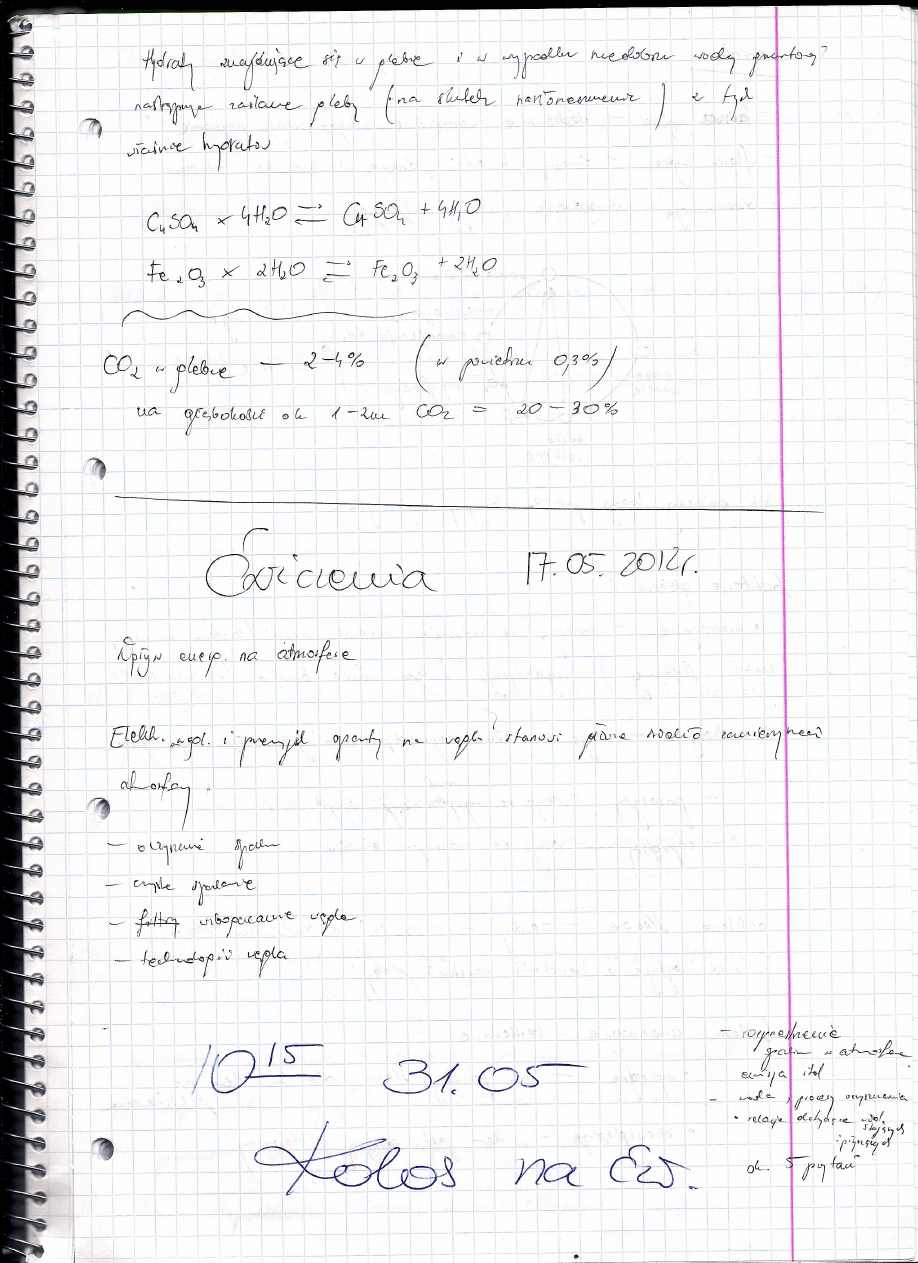 Hydraty znajdujące się w glebie i w wypadku niedoboru wody gruntowej
następuje gleby (na skutek nasłonecznienia) z tych
właśnie hydratów
C4SO4 × 4H2O ⇌ C4SO4 + 4H2O
Fe2O3 × 2H2O ⇌ Fe2O3 + 2H2O
CO2 w glebie — 2-4% (w powietrzu 0,3%)
na głębokości ok 1-2m CO2 = 20-30%
Ćwiczenia 17.05.2012r.
Wpływ energ. na atmosferę
Elekt. węgl. i przemysł oparty na węglu stanowi źródło zanieczyszczeń
atmosfery.
— oczyszczanie spalin
— czyste spalanie
— filtry wzbogacanie węgla
— technologie węgla
10 15 31.05
Kolos na ćw.
— rozprzestrzenianie
spalin w atmosferze
emisja itd
— woda, procesy oczyszczania
• relacje dotyczące wód
stojących
i płynących
ok. 5 pytań